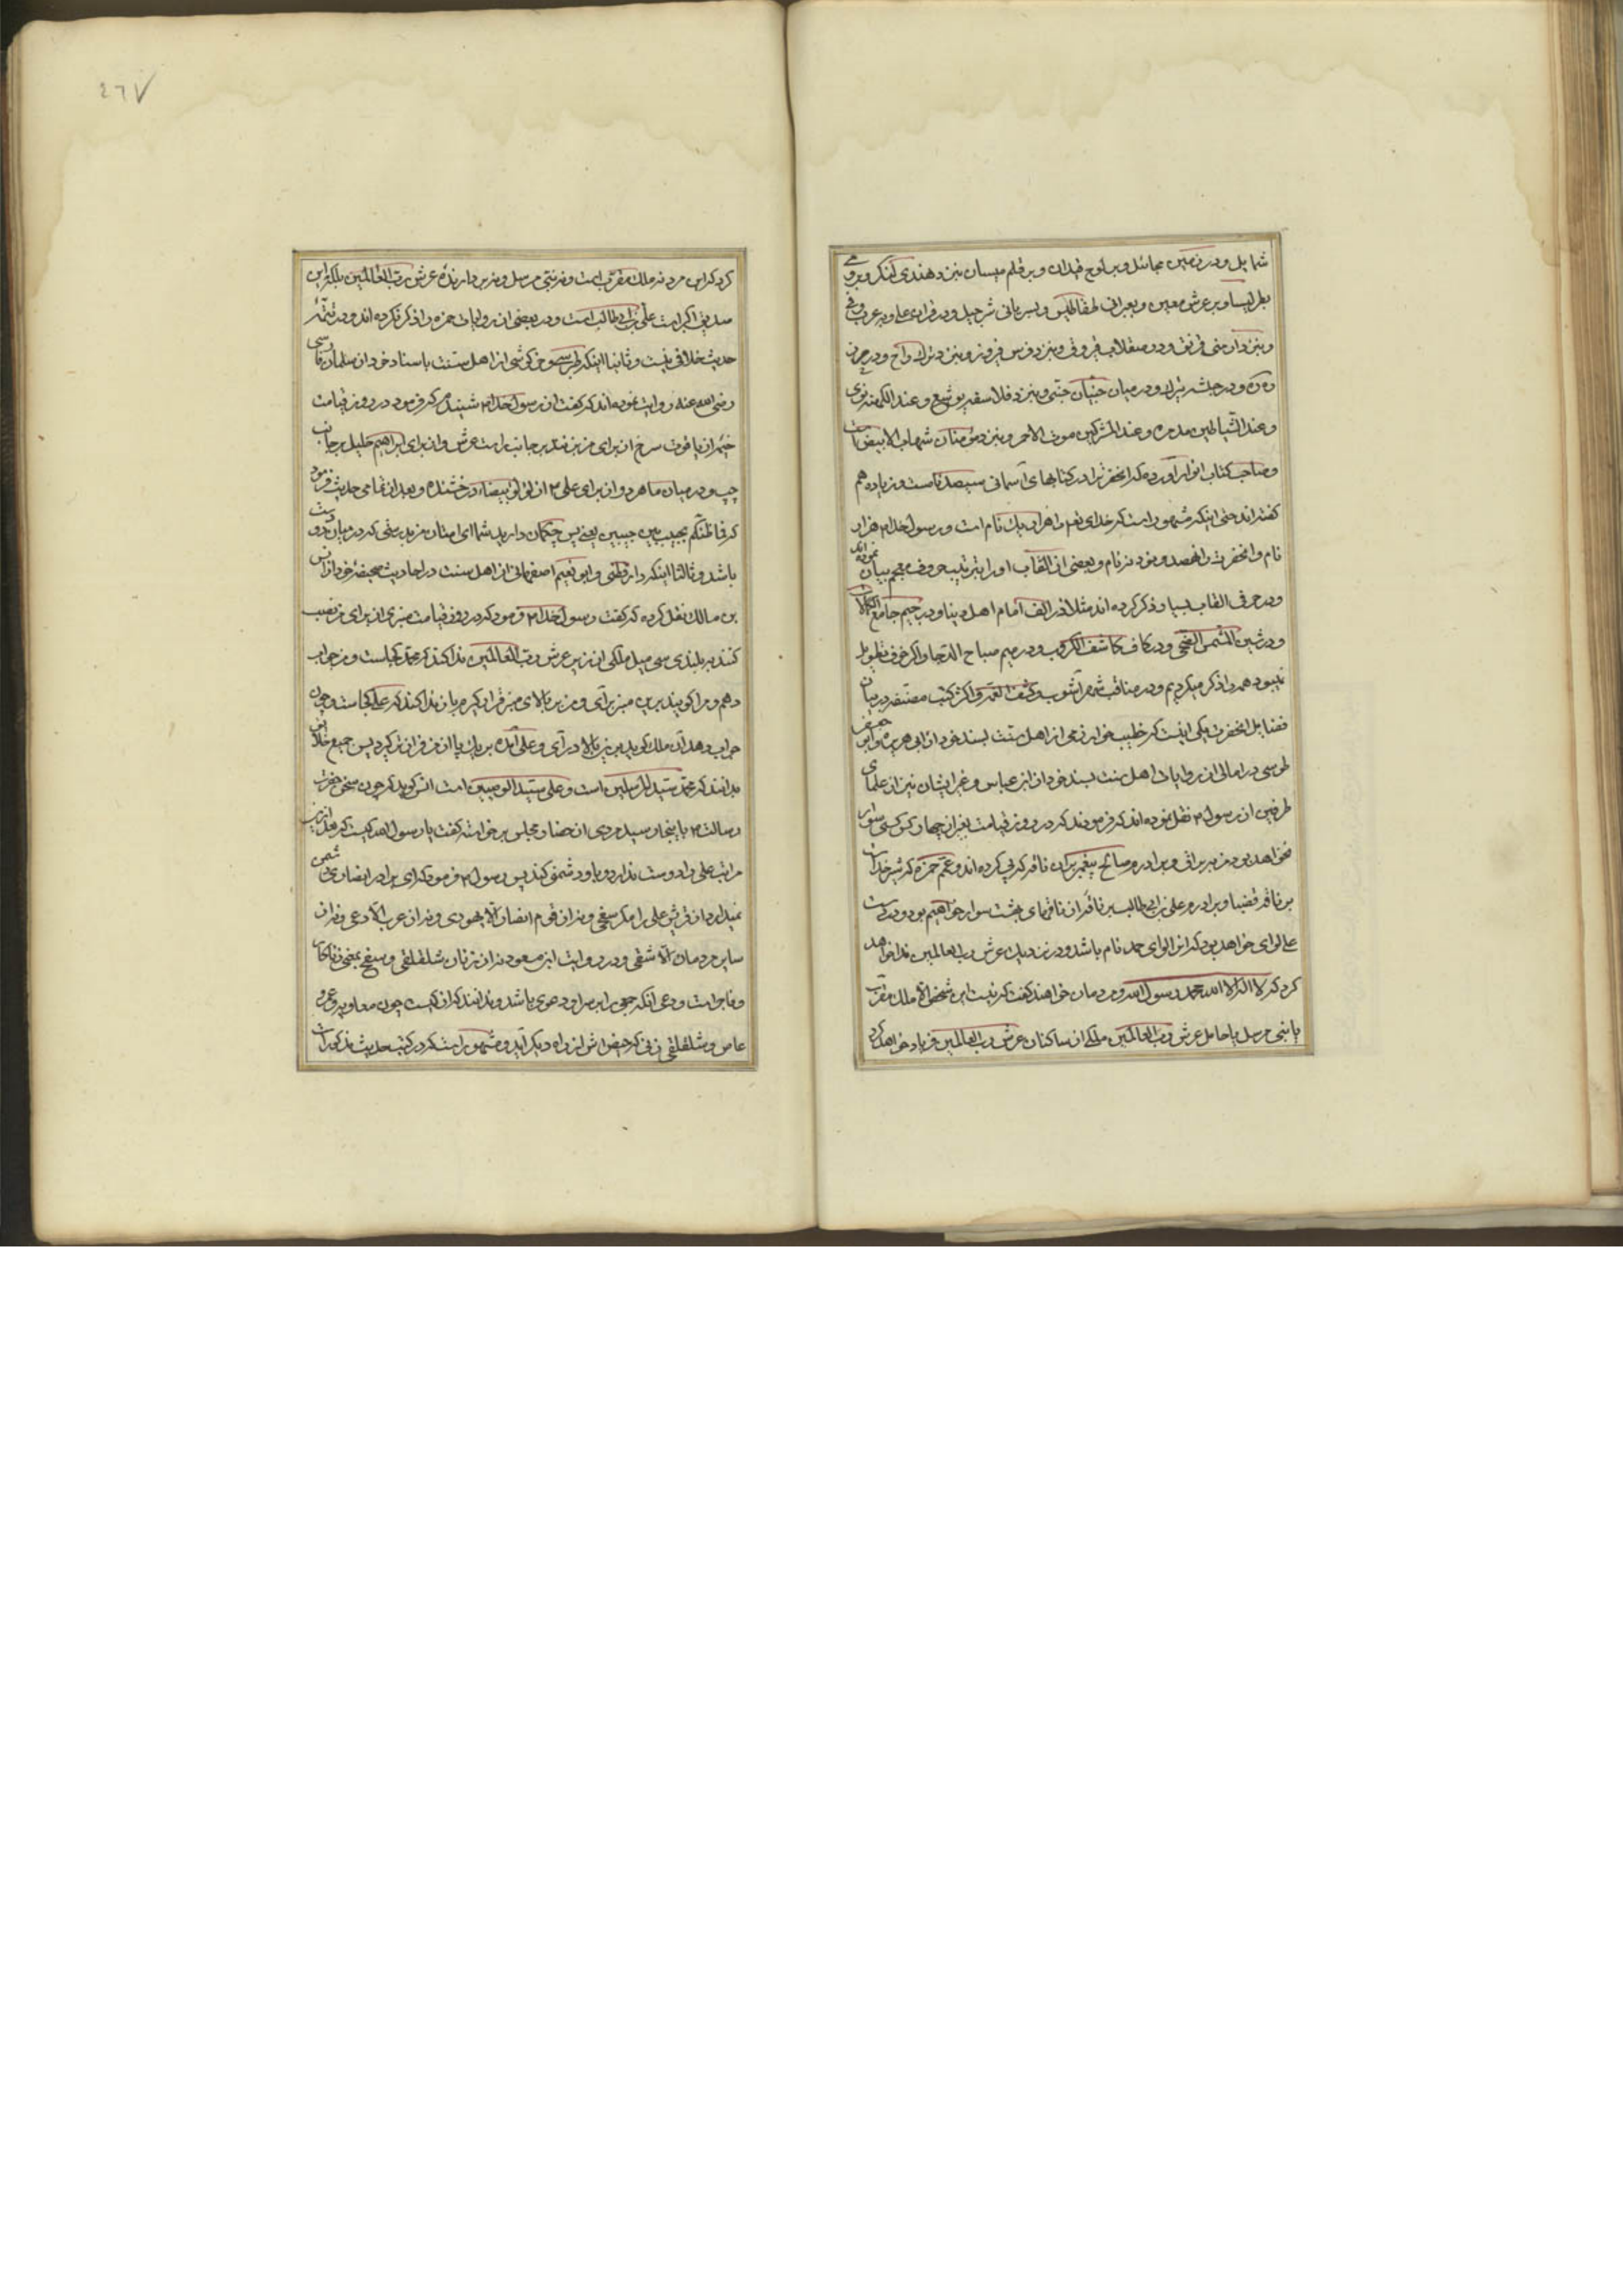 شمایل و در زمین مماسل و بر لوح قیدان و بر قلم میسان و نزد هندی کنکر و
بطریسا و بر عرش معین و بعبرانی طفاطیس و بسریانی شرحیل و در
و نزد ارمنی فریق و در صقلاب فیروق و نزد فرس فیروز و نزد ترک
و در حبشه تبریک و در میان جنیان حبتی و نزد فلاسفه یوشع و عند الکهنه بوی
و عند الشیاطین مدمره و عند المشرکین موت الاحمر و نزد مؤمنان شهاب الابیض
و صاحب کتاب انوار آورده که آنحضرترا در کتابهای آسمانی سیصد نامست و زیاده هم
گفته‌اند حتی اینکه مشهور است که خدای تعم را هزار یک نام است و رسول خدا ۳ هزار
نام و آنحضرت را نهصد و نود نه نام و بعضی از القاب او را بترتیب حروف معجم بیان نموده‌اند
و در حرفی القاب بسیار ذکر کرده‌اند مثلا در الف امام اهل دنیا و در جیم جامع الکمالات
و در شین الشمس الضحی و در کاف کاشف الکروب و در میم مصباح الدجا و اگر خوف تطویل
نمیبود همه را ذکر میکردیم و در مناقب شهرآشوب و کشف الغمه و اکثر کتب
فضایل آنحضرت یکی اینست که خطیب خوارزمی از اهل سنت بسند خود از ابی هریره و ابی جعفر
طوسی در امالی از روایات اهل سنت بسند خود از ابن عباس و غیر ایشان نیز از علمای
طرفین از رسول ۳ نقل نموده‌اند که فرمودند که در روز قیامت بغیر از چهار کس کسی سوار
نخواهد بود من بر براق و برادرم صالح پیغمبر بران ناقه که پی کرده‌اند و عمم حمزه که شیر خداست
بر ناقه غضبا و برادرم علی بن ابی طالب بر ناقه از ناقهای بهشت سوار خواهیم بود و در دست
علی لوای خواهد بود که انرا لوای حمد نام باشد و در نزدیک عرش رب العالمین ندا خواهد
کرد که لا اله الا الله محمد رسول الله و مردمان خواهند گفت که نیست این شخص الا ملک مقرب
یا نبی مرسل یا حامل عرش رب العالمین ملکی از ساکنان عرش رب العالمین فریاد خواهد کرد
کرد که این مرد نه ملک مقرب است و نه نبی مرسل و نه بر دارنده عرش رب العالمین بلکه این
صدیق اکبر است علی بن ابی طالب است و در بعضی از روایات حمزه را ذکر نکرده‌اند و در تتمهٔ
حدیث خلافی نیست و ثانیا اینکه خرکوشی از اهل سنت باسناد خود از سلمان فارسی
رضی الله عنه روایت نموده‌اند که گفت از رسول خدا ۳ شنیدم که فرمود در روز قیامت
خیمه از یاقوت سرخ از برای من بزنند بر جانب راست عرش و از برای ابراهیم خلیل بر جانب
چپ و در میان ما هر دو از برای علی ۳ از لؤلؤ بیضاء درخشنده و بعد از تمامی حدیث فرمود
که فما ظنکم بحبیب بین حبیبین یعنی پس چه گمان دارید شما ای امتان من بدوستی که در میان دو دوست
باشد و ثالثا اینکه دارقطنی و ابو نعیم اصفهانی از اهل سنت در احادیث صحیحهٔ خود از انس
بن مالک نقل کرده که گفت رسول خدا ۳ فرمود که در روز قیامت منبری از برای من نصب
کنند به بلندی سی میل ملکی از زیر عرش رب العالمین ندا کند که محمد کجاست و من جواب
دهم و مرا گویند برین منبر برآی و من بر بالای منبر قرار گیرم باز ندا کند که علی کجاست و چون
جواب دهد آن ملک گوید برین بالا درآی و علی آمده بر یک پایه از من فروتر قرار گیرد پس جمیع خلایق
بدانند که محمد سید المرسلین است و علی سید الوصیین است انس گوید که چون سخن حضرت
رسالت ۳ باینجا رسید مردی از حضار مجلس برخواسته گفت یا رسول الله کیست که بعد ازین
مراتب علی را دوست ندارد و با او دشمنی کند پس رسول ۳ فرمود که ای برادر انصاری دشمن
نمیدارد از قریش علی را مگر سفحی و نه از قوم انصار الا یهودی و نه از عرب الا دعی و نه از
سایر مردمان الا شقی و در روایت ابن مسعود نه از زنان سلقلقی و سفحی بمعنی زناکار
و فاجر است و دعی آنکه جمعی را بر سر او دعوی باشد و ندانند که از کیست چون معاویه و عمرو
عاص و سلقلقی زنی که حیض اش از راه دیگر آید و مشهور است که در کتب حدیث مذکور است